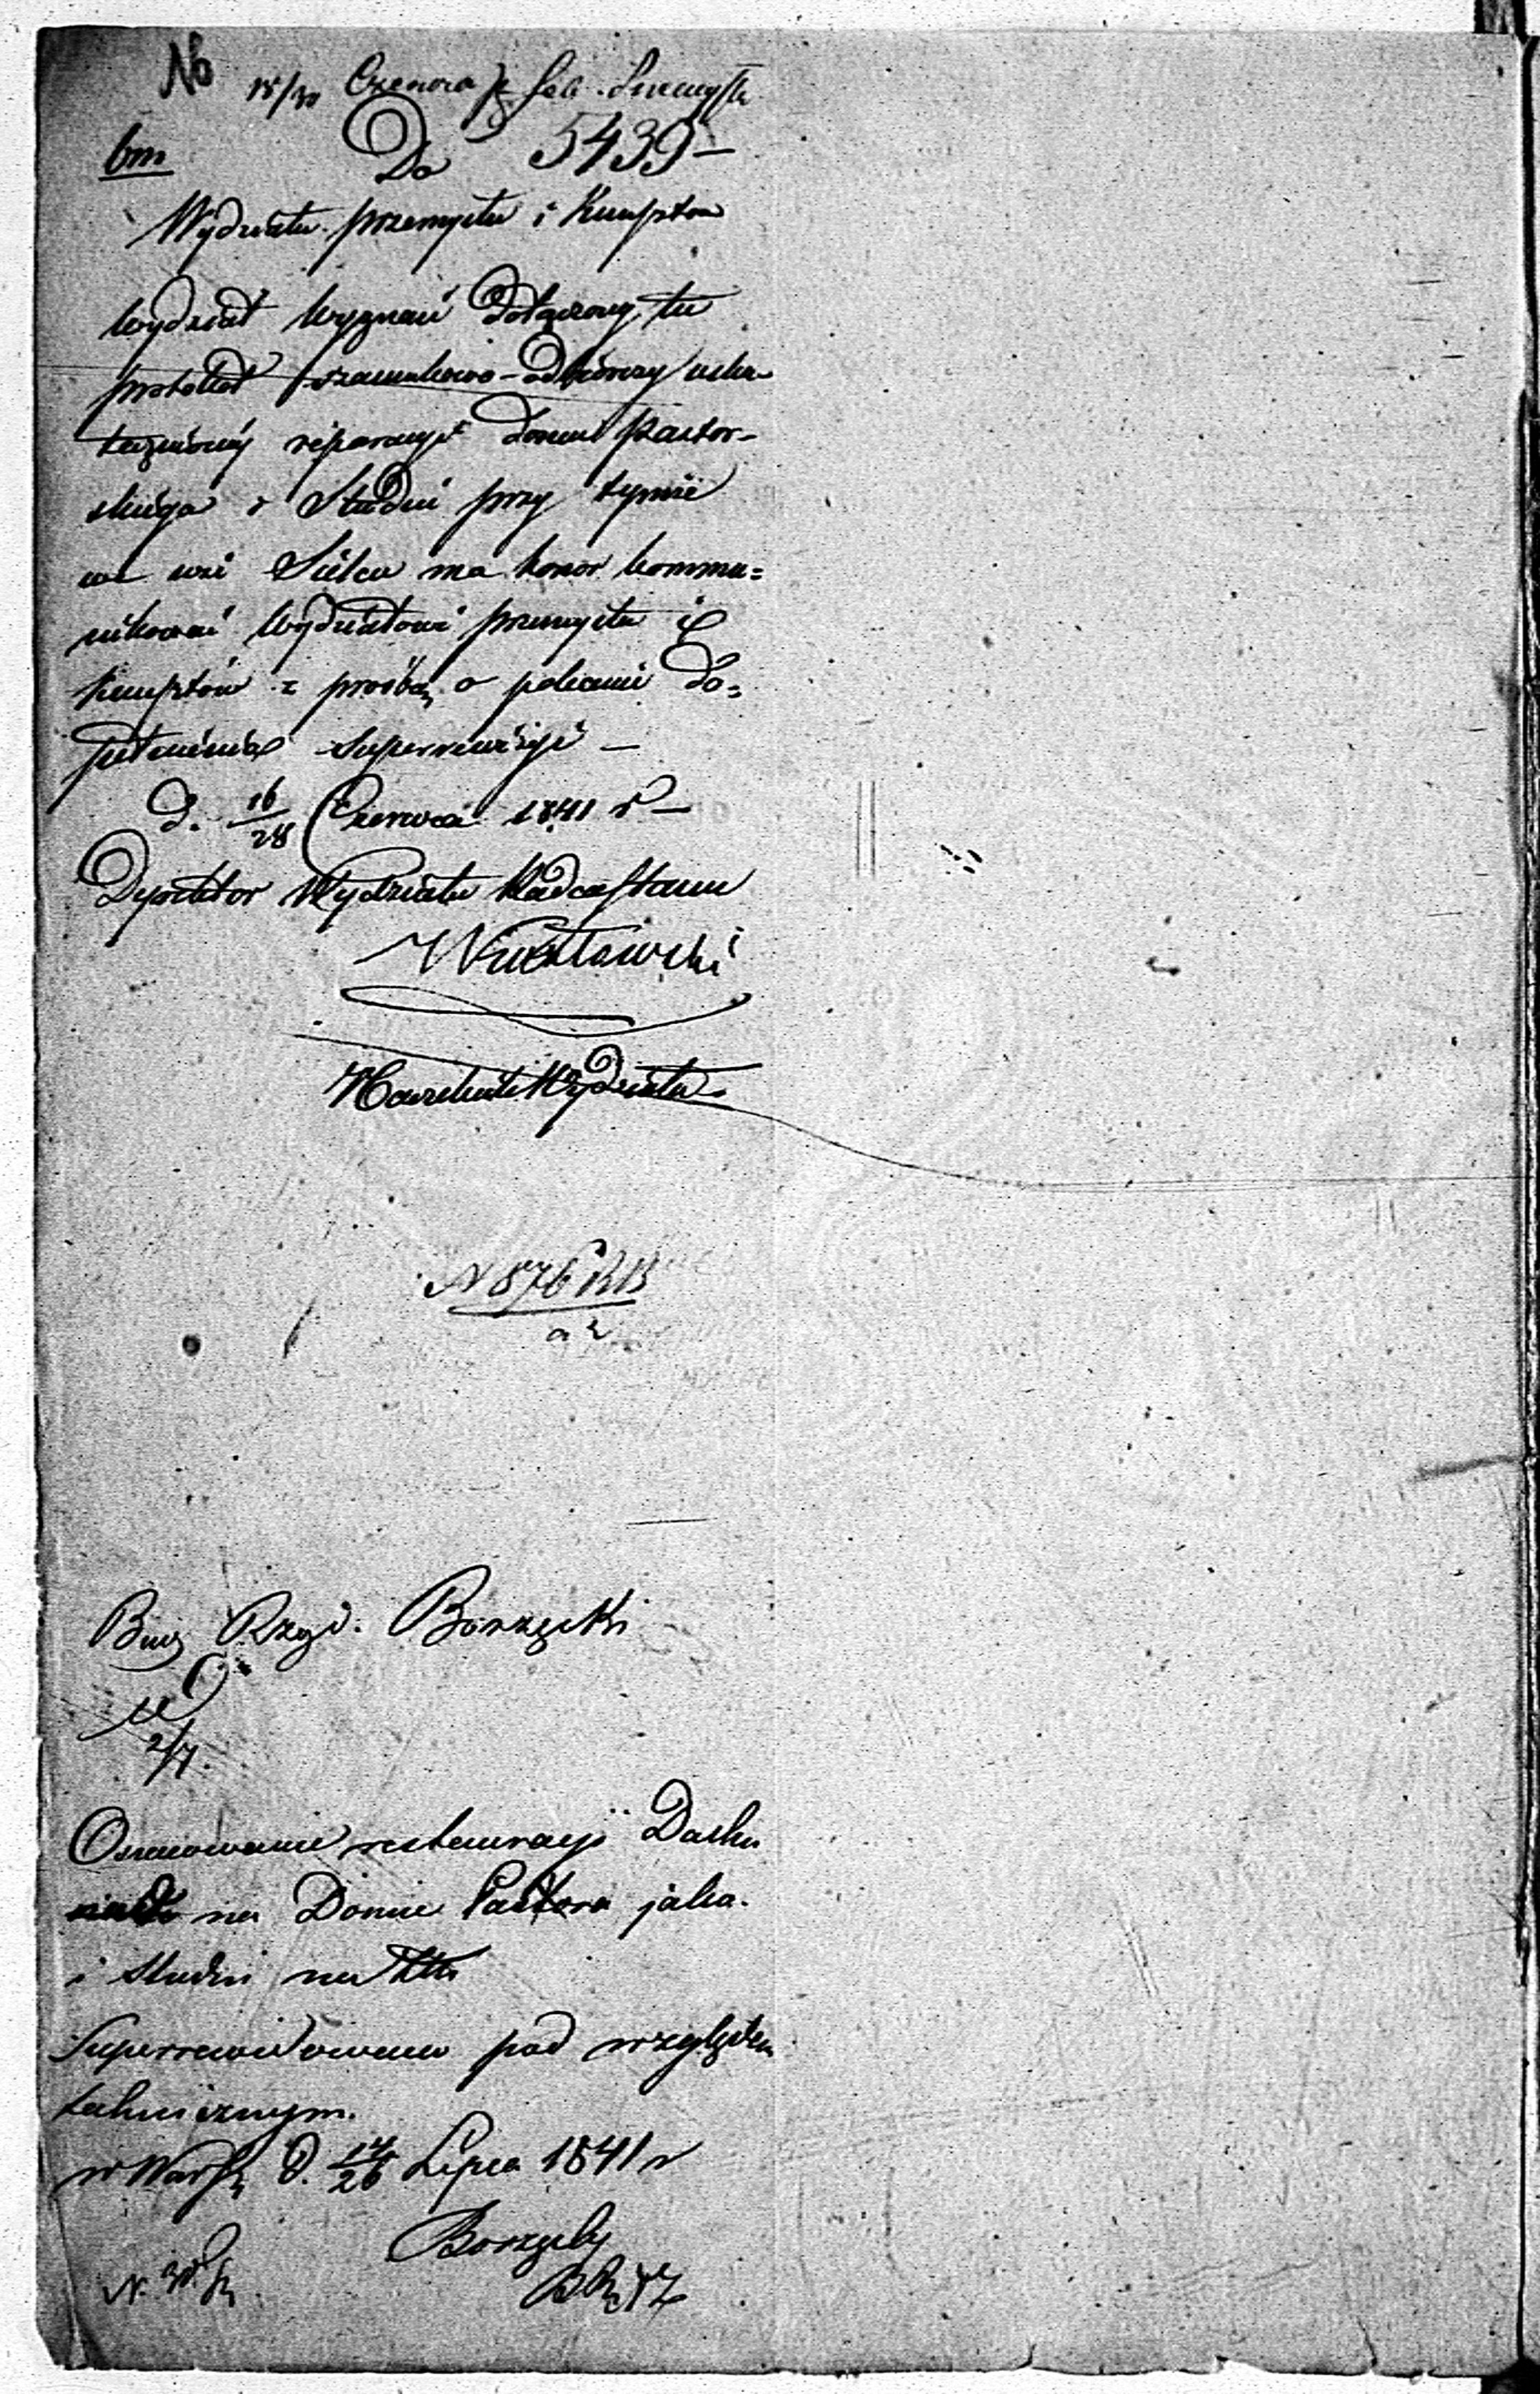 No
18/30 Czerwca
bm Do 5439 —
Wydziału przemysłu i Kunsztów
Wydział Wyznań dołączony tu
protokół szacunkowo-odbiorczy usku-
tecznionéj reparacyi domu Pastor-
skiego i Studni przy tymże
we wsi Sielcu ma honor kommu=
nikować Wydziałowi przemysłu i
kunsztów z prośbą o polecenie do=
pełnienia superrewizyi —
d. 16/28 Czerwca 1841 r —
Dyrektor Wydziału Radca Stanu
Naczelnik Wydziału
N 876 RB
Bud Rząd. Borzęcki
2/7.
Oszacowanie restauracyi Dachu
na Domie Pastora jako
i studni
Superrewidowano pod względem
technicznym.
w Warsz d. 14/26 Lipca 1841 r
Borzęcki